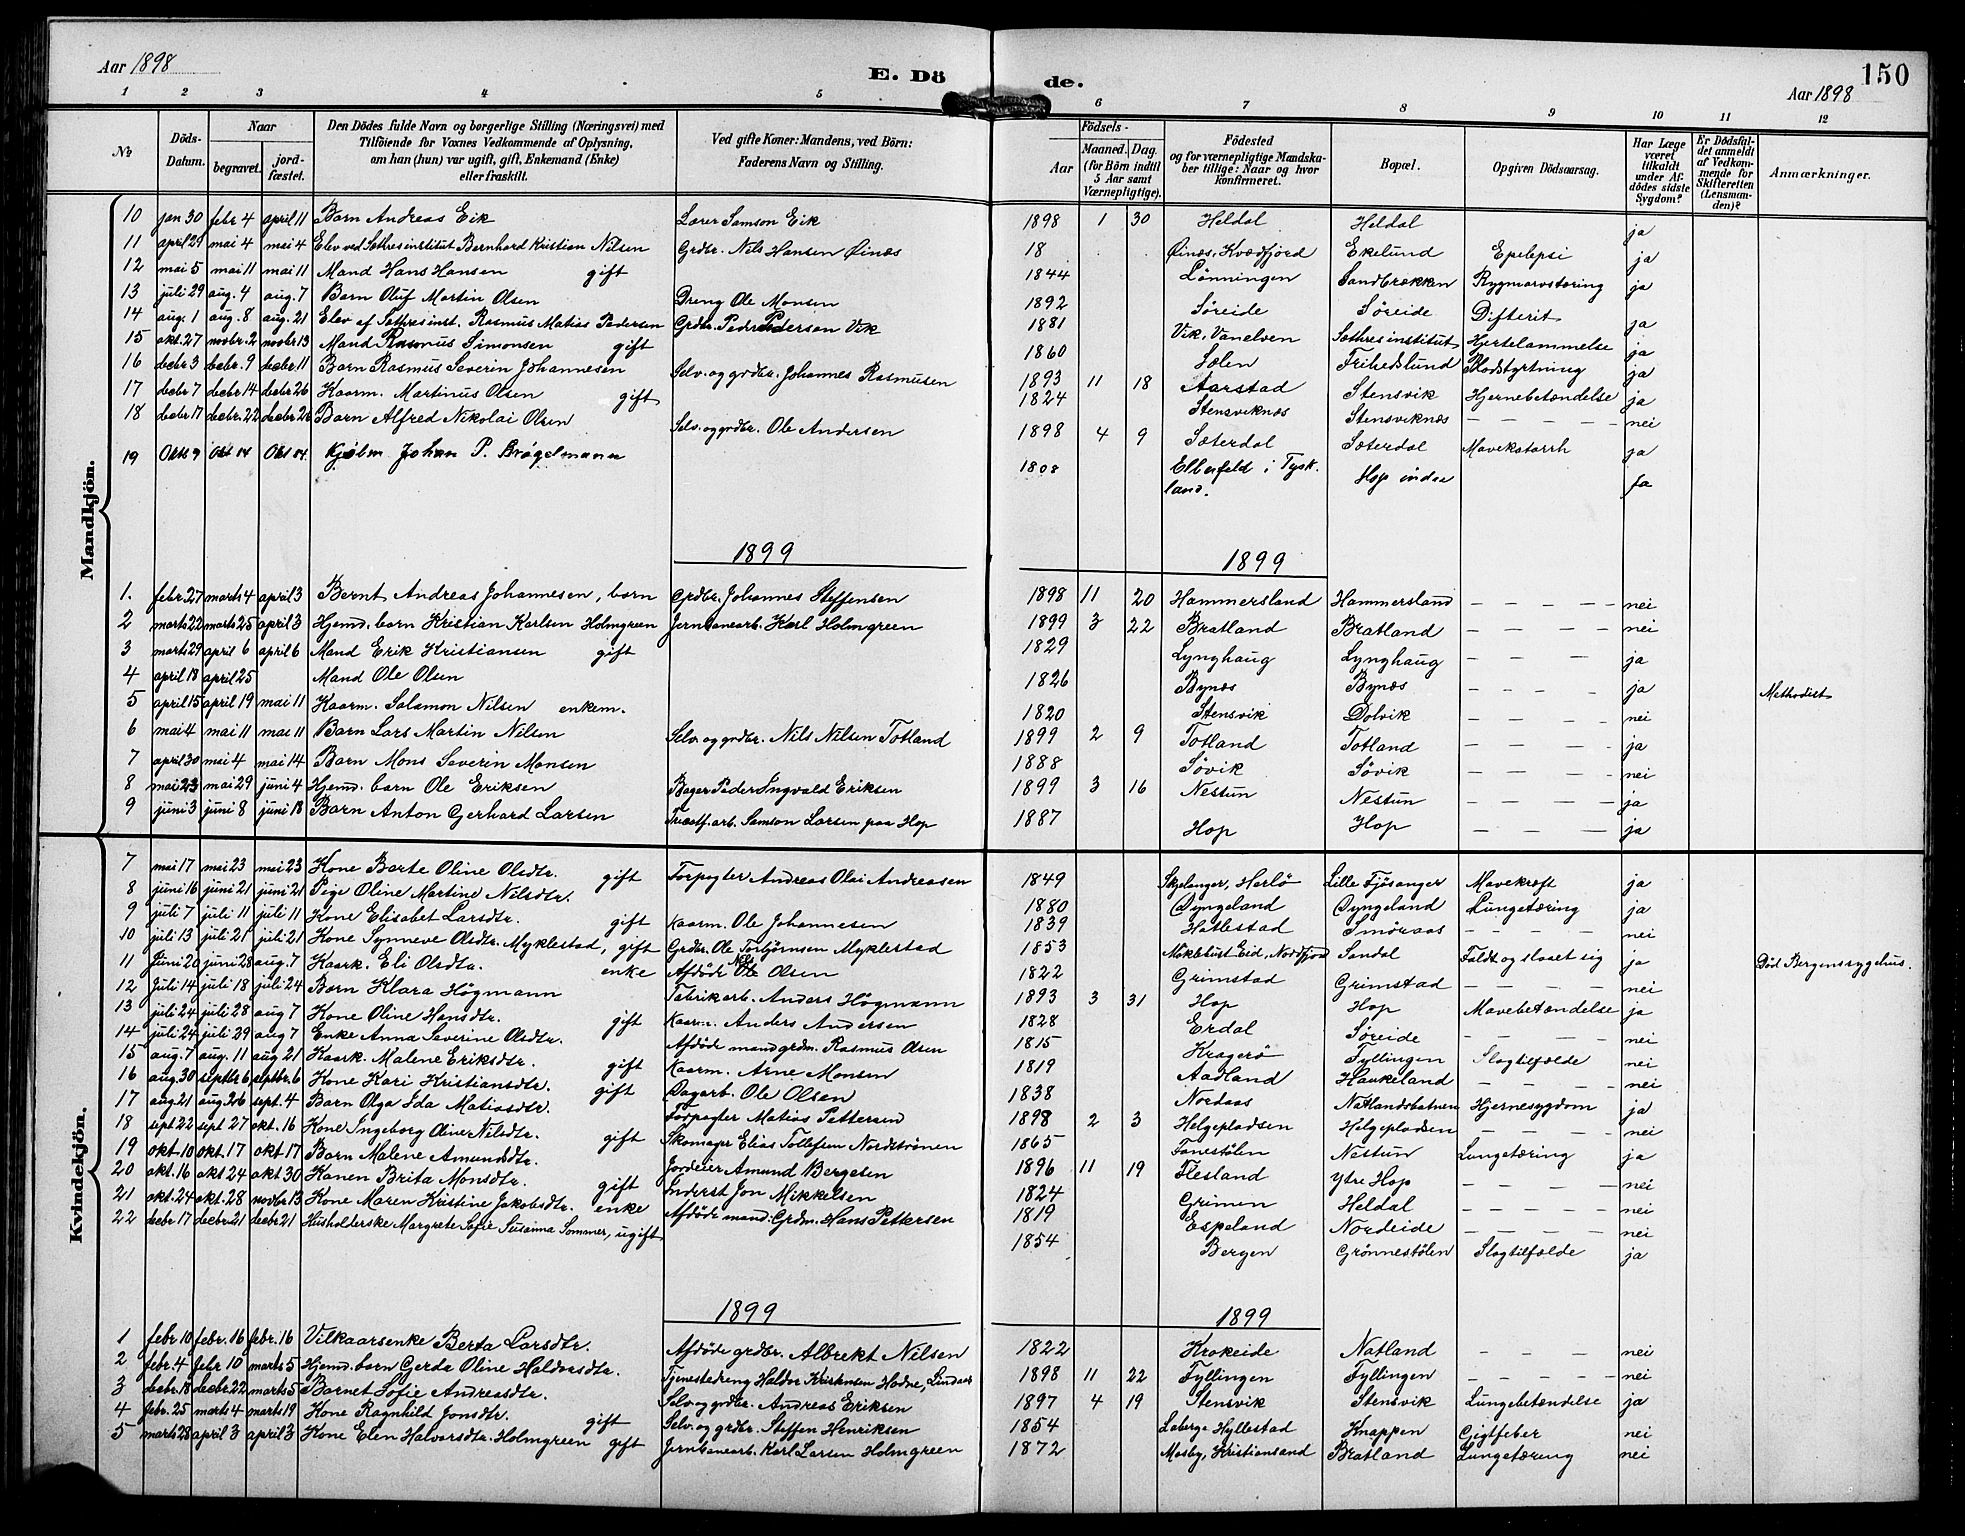 Aar 1898
E. Dö
de.
150
Aar 1898
1 2 3 4 5 6 7 8 9 10 11 12
№
Döds-Datum.
Naar
begravet.
jord-fæstet.
Den Dödes fulde Navn og borgerlige Stilling (Næringsvei) med
Tilföiende for Voxnes Vedkommende af Oplysning,
om han (hun) var ugift, gift, Enkemand (Enke)
eller fraskilt.
Ved gifte Koner: Mandens, ved Börn:
Faderens Navn og Stilling.
Födsels-
Aar
Maaned.
Dag.
(for Börn indtil
5 Aar samt
Værnepligtige).
Födested
og for værnepligtige Mandska-
ber tillige: Naar og hvor
konfirmeret.
Bopæl.
Opgiven Dödsaarsag.
Har Læge
været
tilkaldt
under Af-
dödes sidste
Sygdom?
Er Dödsfal-
det anmeldt
af Vedkom-
mende for
Skifteretten
(Lensman-
den)?
Anmærkninger.
Mandkjön.
10 jan 30 febr 4 april 11 Barn Andreas Eik Lærer Samson Eik 1898 1 30 Heldal Heldal ja
11 april 29 mai 4 mai 4 Elev ved Sothres institut Bernhard Kristian Nilsen Grdbr. Nils Hansen Øinæs 18 Øinæs, Kvædfjord Ekelund Epilepsi ja
12 mai 5 mai 11 mai 11 Mand Hans Hansen gift 1844 Lønningen Sandbrækken Rygmarvstæring ja
13 juli 29 aug. 4 aug. 7 Barn Oluf Martin Olsen Dreng Ole Monsen 1892 Søreide Søreide Difterit ja
14 aug. 1 aug. 8 aug. 21 Elev af Sothres inst. Rasmus Matias Pedersen Grdbr. Peder Pederson Vik 1881 Vik, Vanelven Sothres institut Hjertelammelse ja
15 okt. 27 novbr. 2 novbr 13 Mand Rasmus Simonsen gift 1860 Solen Frihedslund Blodstyrtning ja
16 decbr 3 decbr. 9 decbr. 11 Barn Rasmus Severin Johannesen Selv. og grdbr. Johannes Rasmusen 1893 11 18 Aarstad Stensvik Hjernebetændelse ja
17 decbr 7 decbr 14 decbr 26 Kaarm. Martinus Olsen gift 1824 Stensviknæs Stensviknæs – – – – nei
18 decbr. 17 decbr. 22 decbr. 26 Barn Alfred Nikolai Olsen Selv. og grdbr. Ole Andersen 1898 4 9 Sæterdal Sæterdal Mavekatarrh ja
19 Oktb 9 Okt 14 Okt 14. Kjøbm Johan P. Brögelmann 1808 Elberfeld i Tysk-
land. Hop indre ja
1899
1899
1. febr. 27 marts 4 april 3 Bernt Andreas Johannesen, barn Grdbr. Johannes Steffensen 1898 11 20 Hammersland Hammersland – – – – nei
2 marts 22 marts 25 april 3 Hjemd. barn Kristian Karlsen Holmgreen Jernbanearb. Karl Holmgreen 1899 3 22 Bratland Bratland – – – nei
3 marts 29 april 6 april 6 Mand Erik Kristiansen gift 1829 Lynghaug Lynghaug – – – ja
4 april 18 april 25 Mand Ole Olsen 1826 Bynæs Bynæs – – – ja Methodist
5 april 15 april 19 mai 11 Kaarm. Salamon Nilsen enkem. 1820 Stensvik Dolvik – – – nei
6 mai 4 mai 11 mai 11 Barn Lars Martin Nilsen Selv. og grdbr. Nils Nilsen Totland 1899 2 9 Totland Totland – – – ja
7 april 30 mai 4 mai 14 Barn Mons Severin Monsen 1888 Søvik Søvik – – – nei
8 mai 23 mai 29 juni 4 Hjemd. barn Ole Eriksen Bager Peder Ingvald Eriksen 1899 3 16 Nestun Nestun – – – ja
9 juni 3 juni 8 juni 18 Barn Anton Gerhard Larsen Samson Larsen paa Hop 1887 Hop Hop – – – ja
Kvindekjön.
7 mai 17 mai 23 mai 23 Kone Barte Oline Olsdtr. gift Forpagter Andreas Olai Andreasen 1849 Skjelanger, Herlö Lille Fjøsanger Mavekræft ja
8 juni 16 juni 21 juni 21 Pige Oline Martine Nilsdtr. 1880 Dyngeland Dyngeland Lungetæring ja
9 juli 7 juli 11 juli 11 Kone Elisabet Larsdtr. gift Kaarm. Ole Johannesen 1839 Hatlestad Smöraas – – – nei
10 juli 13 juli 21 juli 21 Kone Synneve Olsdtr. Myklestad, gift Grdbr. Ole Torbjørnsen Myklestad 1853 Möklebust Eid, Nordfjord Sandal Faldt og sloset sig ja Död Bergens sygehus.
11 Juni 20 juni 28 aug. 7 Kaark. Eli Olsdtr. enke Afdøde Nils Ole Olsen 1822 Grimstad Grimstad – – – nei
12 Juli 14 juli 18 juli 24 Barn Klara Högmann Fabrikarb. Anders Högmann 1893 3 31 Hop Hop Mavebetændelse ja
13 juli 24 juli 28 aug 7 Kone Oline Hansdtr. gift Kaarm. Anders Andersen 1828 Erdal Søreide – – – nei
14 juli 24 juli 29 aug 7 Enke Anna Severine Olsdtr. Afdöde mand grdm. Rasmus Olsen 1815 Kragerö Fyllingen Slagtilfælde nei
15 aug. 7 aug. 11 aug 21 Kaark. Malene Eriksdtr. gift Kaarm. Arne Monsen 1819 Aadland Haukeland – – – nei
16 aug. 30 septbr 6 septbr. 6 Kone Kari Kristiansdtr. gift Dagarb. Ole Olsen 1838 Nordaas Natlandsbatnen Hjernesygdom ja
17 aug 21 aug 26 sept. 4 Barn Olga Ida Matiasdtr. Forpagter Matias Pettersen 1898 2 3 Helgepladsen Helgepladsen – – – nei
18 sept 22 sept 27 okt. 16 Kone Ingeborg Oline Nilsdtr. gift Skomager Elias Tollefsen Nordstrønen 1865 Fanestölen Nestun Lungetæring ja
19 okt. 10 okt. 17 okt 17 Barn Malene Amundsdtr. Jordeier Amund Bergesen 1896 11 19 Flesland Ytre Hop – – – nei
20 okt. 16 okt 24 okt 30 Konen Brita Monsdtr. gift Inderst Jon Mikkelsen 1824 Grimen Heldal – – – nei
21 okt. 24 okt. 28 novbr 13 Kone Maren Kristine Jakobsdtr. enke Afdöde mand. Grdm. Hans Pettersen 1819 Espeland Nordeide – – – nei
22 decbr 17 decbr 21 decbr 21 Husholderske Margrete Sofie Susanna Sommer, ugift 1854 Bergen Grönnestölen Slagtilfælde ja
1899
1899
1 febr. 10 febr. 16 febr. 16 Vilkaarsenke Berta Larsdtr. Afdöde grdbr. Albrekt Nilsen 1822 Krokeide Natland – – – nei
2 febr. 4 febr 10 marts 5 Hjemd. barn Gerda Oline Haldorsdtr. Tjenestedreng Haldor Kristensen Hodne, Lindaas 1898 11 22 Fyllingen Fyllingen – – – – nei
3 decbr. 18 decbr. 22 marts 5 Barnet Sofie Andreasdtr. Selv. og grdbr. Andreas Eriksen 1897 4 19 Stensvik Stensvik Lungebetændelse ja
4 febr. 25 marts 4 marts 19 Kone Ragnhild Jonsdtr. gift Selv. og grdbr. Steffen Henriksen 1854 Laberge Hyllestad Knappen Gigtfeber nei
5 marts 28 april 3 april 3 Kone Elen Halvorsdtr. Holmgreen gift Jernbanearb. Karl Larsen Holmgreen 1872 Mosby, Kristiansand Bratland Lungetæring nei